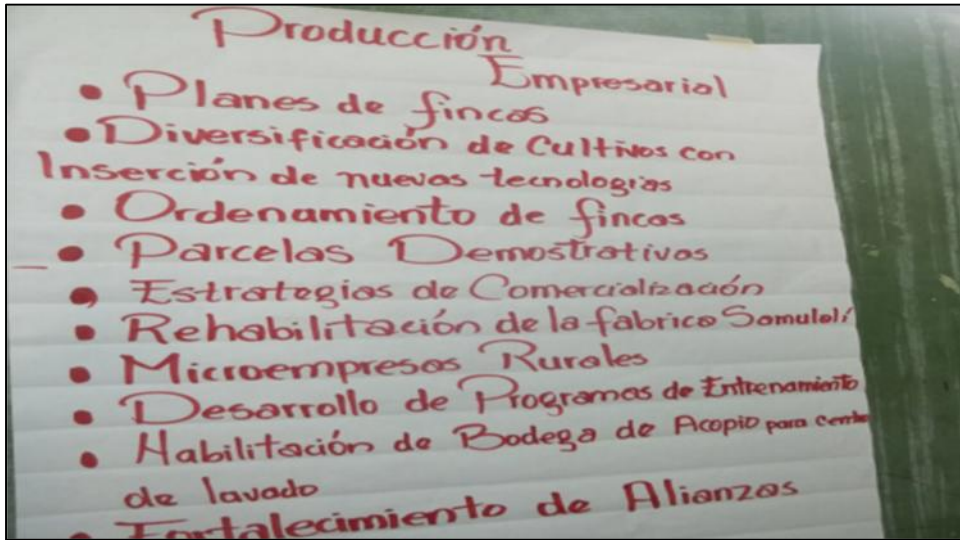 Producción
Empresarial
• Planes de fincas
• Diversificación de Cultivos con
Inserción de nuevas tecnologias
• Ordenamiento de fincas
• Parcelas Demostrativas
• Estrategias de Comercialización
• Rehabilitación de la fabrica
• Microempresas Rurales
• Desarrollo de Programas de Entrenamiento
• Habilitación de Bodega de Acopio para
de lavado
• Fortalecimiento de Alianzas